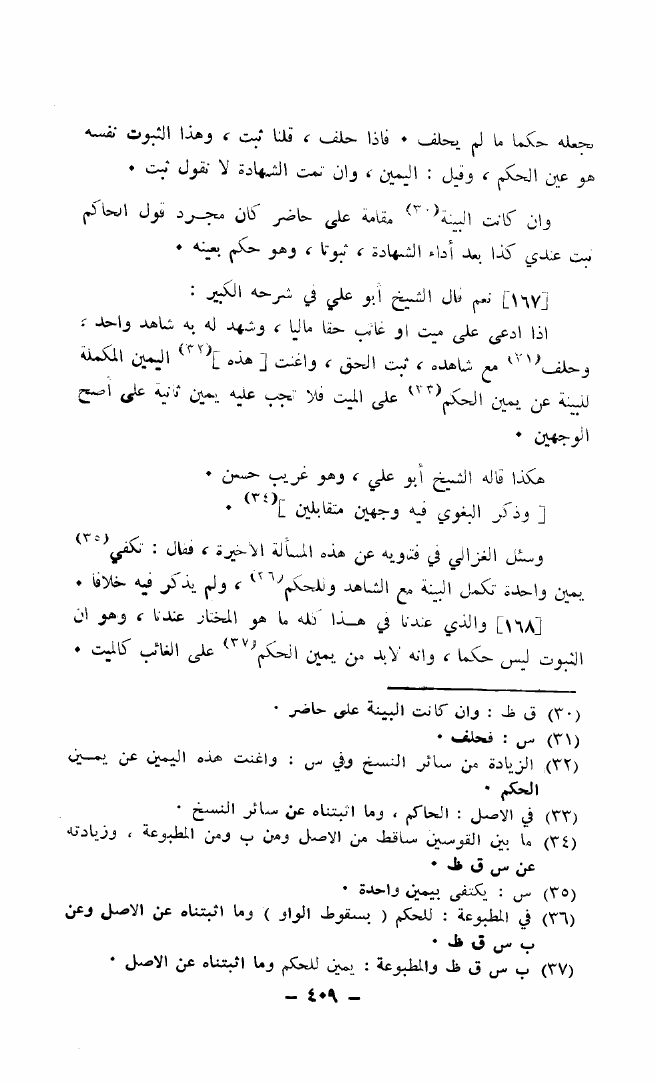 يجعله حكما ما لم يحلف ٠ فاذا حلف ، قلنا ثبت ، وهذا الثبوت نفسه
هو عين الحكم ، وقيل : اليمين ، وان تمت الشهادة لا نقول ثبت ٠
وان كانت البينة(٣٠) مقامة على حاضر كان مجرد قول الحاكم
ثبت عندي كذا بعد أداء الشهادة ، ثبوتا ، وهو حكم بعينه ٠
[١٦٧] نعم قال الشيخ أبو علي في شرحه الكبير :
اذا ادعى على ميت او غائب حقا ماليا ، وشهد له به شاهد واحد ،
وحلف(٣١) مع شاهده ، ثبت الحق ، واغنت [ هذه ](٣٢) اليمين المكملة
للبينة عن يمين الحكم(٣٣) على الميت فلا تجب عليه يمين ثانية على أصح
الوجهين ٠
هكذا قاله الشيخ أبو علي ، وهو غريب حسن ٠
[ وذكر البغوي فيه وجهين متقابلين ](٣٤) ٠
وسئل الغزالي في فتدويه عن هذه المسألة الاخيرة ، فقال : تكفي(٣٥)
يمين واحدة تكمل البينة مع الشاهد وللحكم(٣٦) ، ولم يذكر فيه خلافا ٠
[١٦٨] والذي عندنا في هـذا كله ما هو المختار عندنا ، وهو ان
الثبوت ليس حكما ، وانه لابد من يمين الحكم(٣٧) على الغائب كالميت ٠
(٣٠) ق ظ : وان كانت البينة على حاضر ٠
(٣١) س : فحلف ٠
(٣٢) الزيادة من سائر النسخ وفي س : واغنت هذه اليمين عن يمـين
الحكم ٠
(٣٣) في الاصل : الحاكم ، وما اثبتناه عن سائر النسخ ٠
(٣٤) ما بين القوسين ساقط من الاصل ومن ب ومن المطبوعة ، وزيادته
عن س ق ظ ٠
(٣٥) س : يكتفى بيمين واحدة ٠
(٣٦) في المطبوعة : للحكم ( بسقوط الواو ) وما اثبتناه عن الاصل وعن
ب س ق ظ ٠
(٣٧) ب س ق ظ والمطبوعة : يمين للحكم وما اثبتناه عن الاصل ٠
– ٤٠٩ –